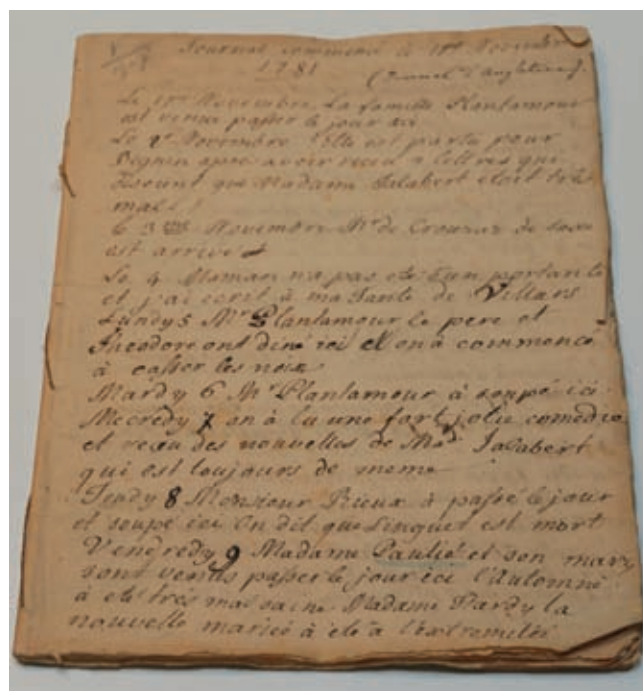 Journal commencé le 1er Novembre
1781
(Journal d'Angletine).
Le 1er Novembre La famille Plantamour
est venue passer le jour ici
Le 2e Novembre Elle est partie pour
après avoir recu 2 lettres qui
disoient que Madame Jalabert etoit très
mal
Le 3 Novembre Mr de Crousaz de
est arrivé
Le 4 Maman n'a pas ete bien portante
et j'ai ecrit à ma Tante de Villars
Lundy 5 Mr Plantamour le pere et
Theodore ont diné ici et on à commencé
à casser les noix
Mardy 6 Mr Plantamour à soupé ici
Mecredy 7 on à lu une fort jolie comedie
et recu des nouvelles de Mad Jalabert
qui est toujours de meme
Jeudy 8 Monsieur Rieux à passé le jour
et soupé ici On dit que Linguet est mort
Vendredy 9 Madame Paulié et son mary
sont venus passer le jour ici l'Automne
à ete très mal saine Madame Pardy la
nouvelle mariée à ete à l'extremitée